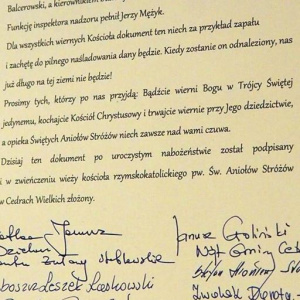 Balcerowski, a kierownikiem
Funkcję inspektora nadzoru pełnił Jerzy Mężyk.
Dla wszystkich wiernych Kościoła dokument ten niech za przykład zapału
i zachętę do pilnego naśladowania dany będzie. Kiedy zostanie on odnaleziony, nas
już długo na tej ziemi nie będzie!
Prosimy tych, którzy po nas przyjdą: Bądźcie wierni Bogu w Trójcy Świętej
jedynemu, kochajcie Kościół Chrystusowy i trwajcie wiernie przy Jego dziedzictwie,
a opieka Świętych Aniołów Stróżów niech zawsze nad wami czuwa.
Dzisiaj ten dokument po uroczystym nabożeństwie został podpisany
i w zwieńczeniu wieży kościoła rzymskokatolickiego pw. Św. Aniołów Stróżów
w Cedrach Wielkich złożony.
Janusz Goliński
Wójt Gminy
Leszek Laskowski
Dorota